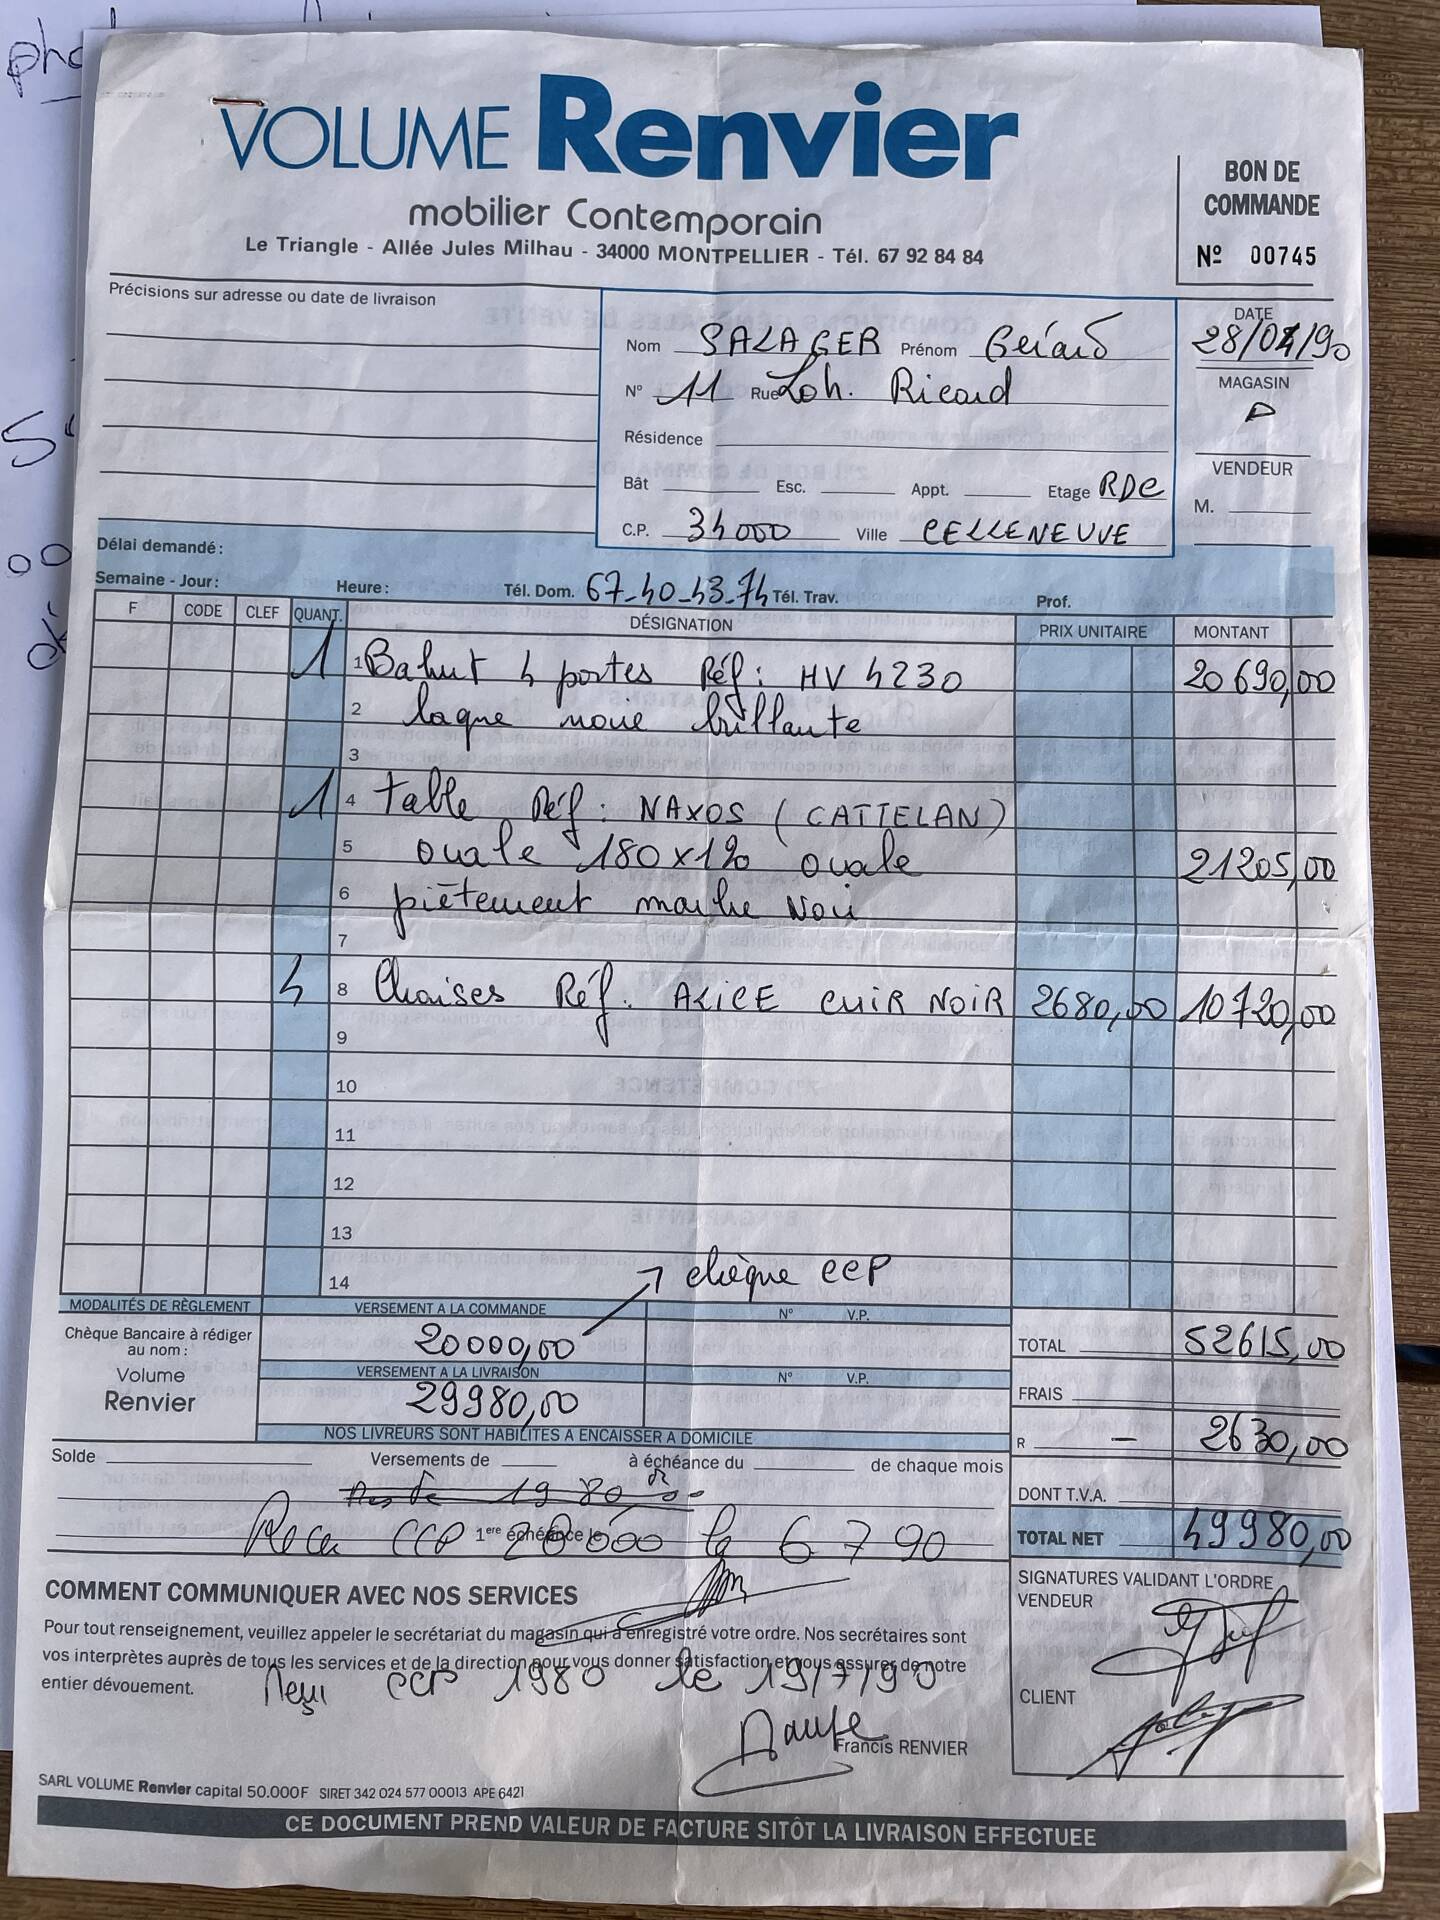 VOLUME Renvier
mobilier Contemporain
Le Triangle - Allée Jules Milhau - 34000 MONTPELLIER - Tél. 67 92 84 84
BON DE
COMMANDE
Nº 00745
Précisions sur adresse ou date de livraison
Nom SALAGER Prénom Gérard
N° 11 Rue Loh. Ricard
Résidence
Bât Esc. Appt. Etage RDC
C.P. 34000 Ville CELLENEUVE
DATE
28/04/90
MAGASIN
VENDEUR
M.
Délai demandé :
Semaine - Jour : Heure : Tél. Dom. 67-40-43-74 Tél. Trav. Prof.
F CODE CLEF QUANT. DÉSIGNATION PRIX UNITAIRE MONTANT
1 1 Bahut 4 portes Réf : HV 4230 20690,00
2 laque noire brillante
3
1 4 table Réf : NAXOS (CATTELAN)
5 ovale 180x120 ovale 21205,00
6 piètement marbre Noir
7
4 8 Chaises Réf. ALICE CUIR NOIR 2680,00 10720,00
9
10
11
12
13
14
chèque CCP
MODALITÉS DE RÈGLEMENT VERSEMENT A LA COMMANDE N° V.P.
Chèque Bancaire à rédiger
au nom :
Volume
Renvier
20000,00
VERSEMENT A LA LIVRAISON N° V.P.
29980,00
NOS LIVREURS SONT HABILITES A ENCAISSER A DOMICILE
TOTAL 52615,00
FRAIS
R - 2630,00
DONT T.V.A.
TOTAL NET 49980,00
Solde Versements de à échéance du de chaque mois
Reste 1980
1ere échéance le
Recu CCP 28000 le 6 7 90
COMMENT COMMUNIQUER AVEC NOS SERVICES
Pour tout renseignement, veuillez appeler le secrétariat du magasin qui a enregistré votre ordre. Nos secrétaires sont
vos interprètes auprès de tous les services et de la direction pour vous donner satisfaction et vous assurer de notre
entier dévouement.
Reçu CCP 1980 le 19/7/90
Francis RENVIER
SIGNATURES VALIDANT L'ORDRE
VENDEUR
CLIENT
SARL VOLUME Renvier capital 50.000F SIRET 342 024 577 00013 APE 6421
CE DOCUMENT PREND VALEUR DE FACTURE SITÔT LA LIVRAISON EFFECTUEE